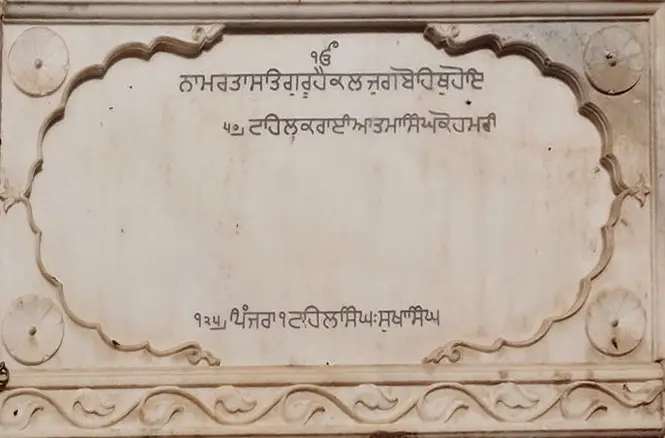 ੴ
ਨਾਮਰਤਾਸਤਿਗੁਰੂਹੈਕਲਜੁਗਬੋਹਿਥੁਹੋਇ
ਟਾਹਿਲਕਰਾਈਆਤਮਾਸਿੰਘਕੋਹਮਰੀ
੧੨੫ ਪਿੰਜਰਾ ੧ ਟਾਹਿਲਸਿੰਘਃਸੁਖਾਸਿੰਘ